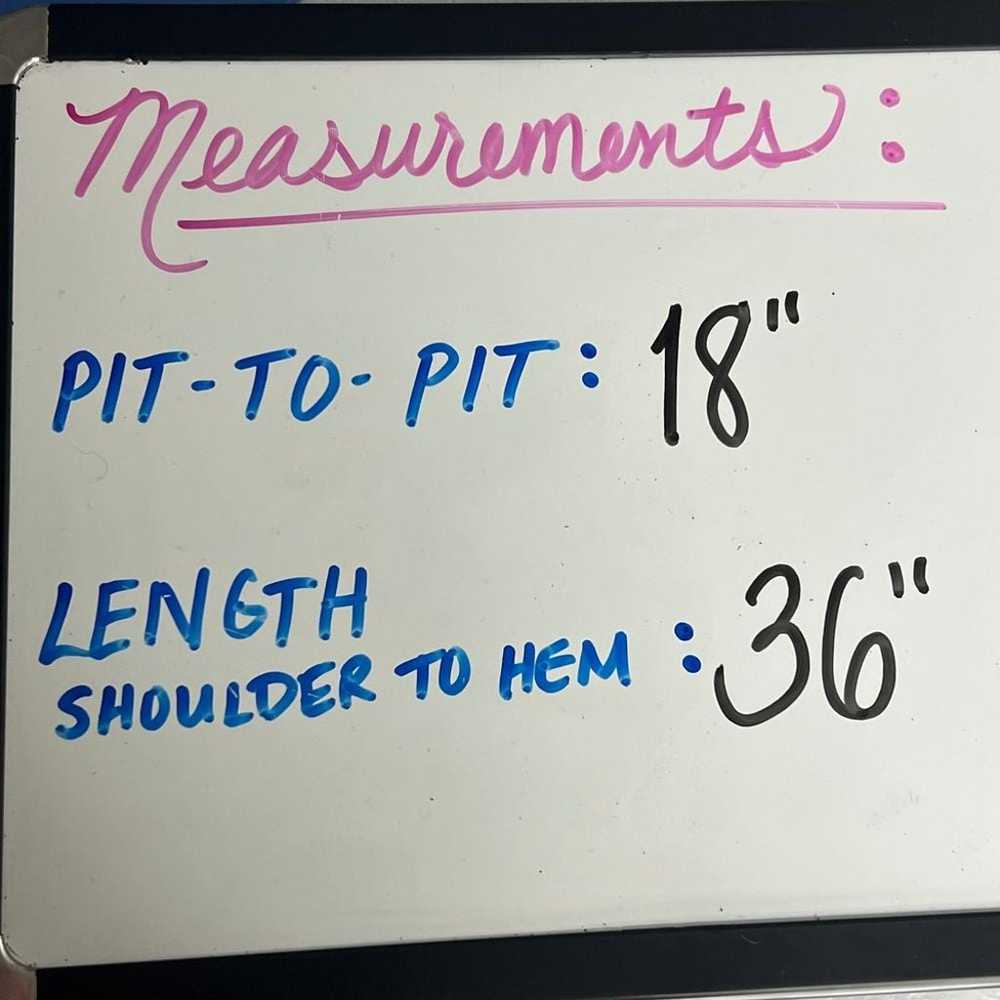 Measurements:
PIT-TO-PIT: 18"
LENGTH
SHOULDER TO HEM: 36"